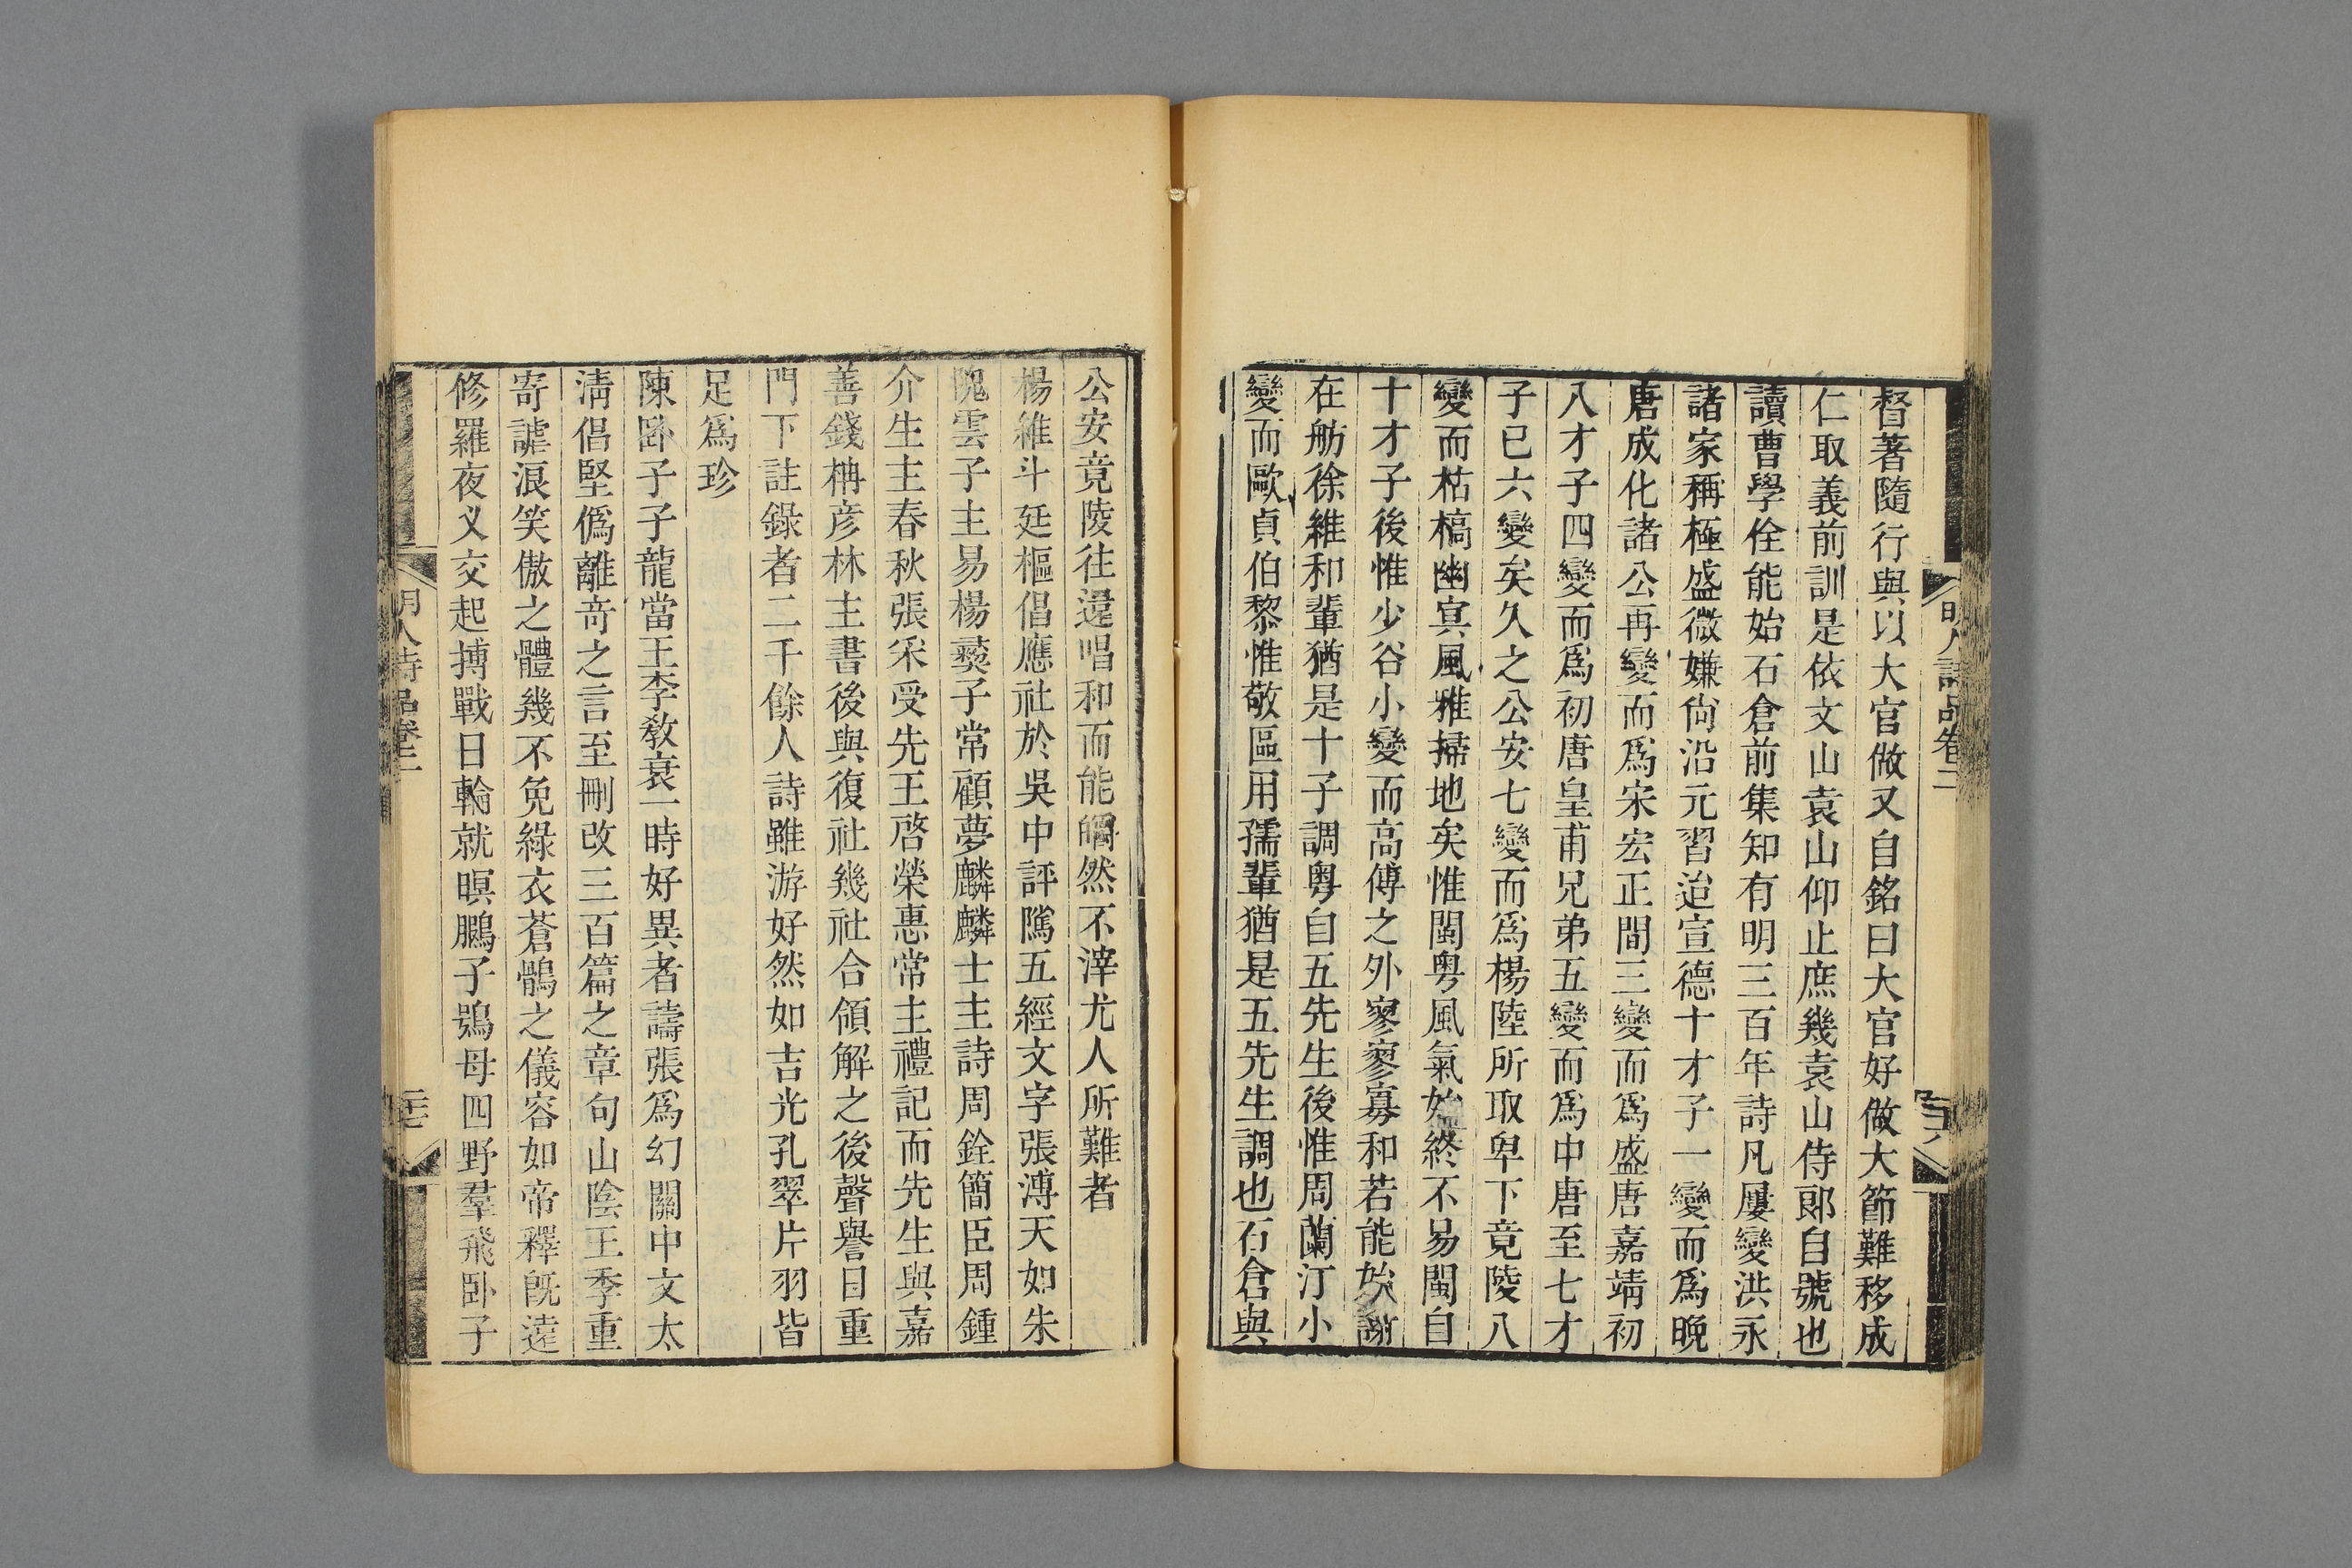 明人詩品卷二
督著隨行與以大官做又自銘曰大官好做大節難移成
仁取義前訓是依文山袁山仰止庶幾袁山侍郞自號也
讀曹學佺能始石倉前集知有明三百年詩凡屢變洪永
諸家稱極盛微嫌尙沿元習迨宣德十才子一變而爲晚
唐成化諸公再變而爲宋宏正間三變而爲盛唐嘉靖初
八才子四變而爲初唐皇甫兄弟五變而爲中唐至七才
子已六變矣久之公安七變而爲楊陸所取卑下竟陵八
變而枯槁幽冥風雅掃地矣惟閩粵風氣始終不易閩自
十才子後惟少谷小變而高傅之外寥寥寡和若能始謝
在舫徐維和輩猶是十子調粵自五先生後惟周蘭汀小
變而歐貞伯黎惟敬區用孺輩猶是五先生調也石倉與
公安竟陵往還唱和而能皭然不滓尤人所難者
楊維斗廷樞倡應社於吳中評隲五經文字張溥天如朱
隗雲子主易楊彝子常顧夢麟麟士主詩周銓簡臣周鍾
介生主春秋張采受先王啓榮惠常主禮記而先生與嘉
善錢栴彥林主書後與復社幾社合領解之後聲譽目重
門下註錄者二千餘人詩雖游好然如吉光孔翠片羽皆
足爲珍
陳臥子子龍當王李敎衰一時好異者譸張爲幻關中文太
淸倡堅僞離奇之言至刪改三百篇之章句山陰王季重
寄謔浪笑傲之體幾不免綠衣蒼鶻之儀容如帝釋旣遠
修羅夜义交起搏戰日輪就暝鵬子鴞母四野羣飛卧子
明人詩品卷二